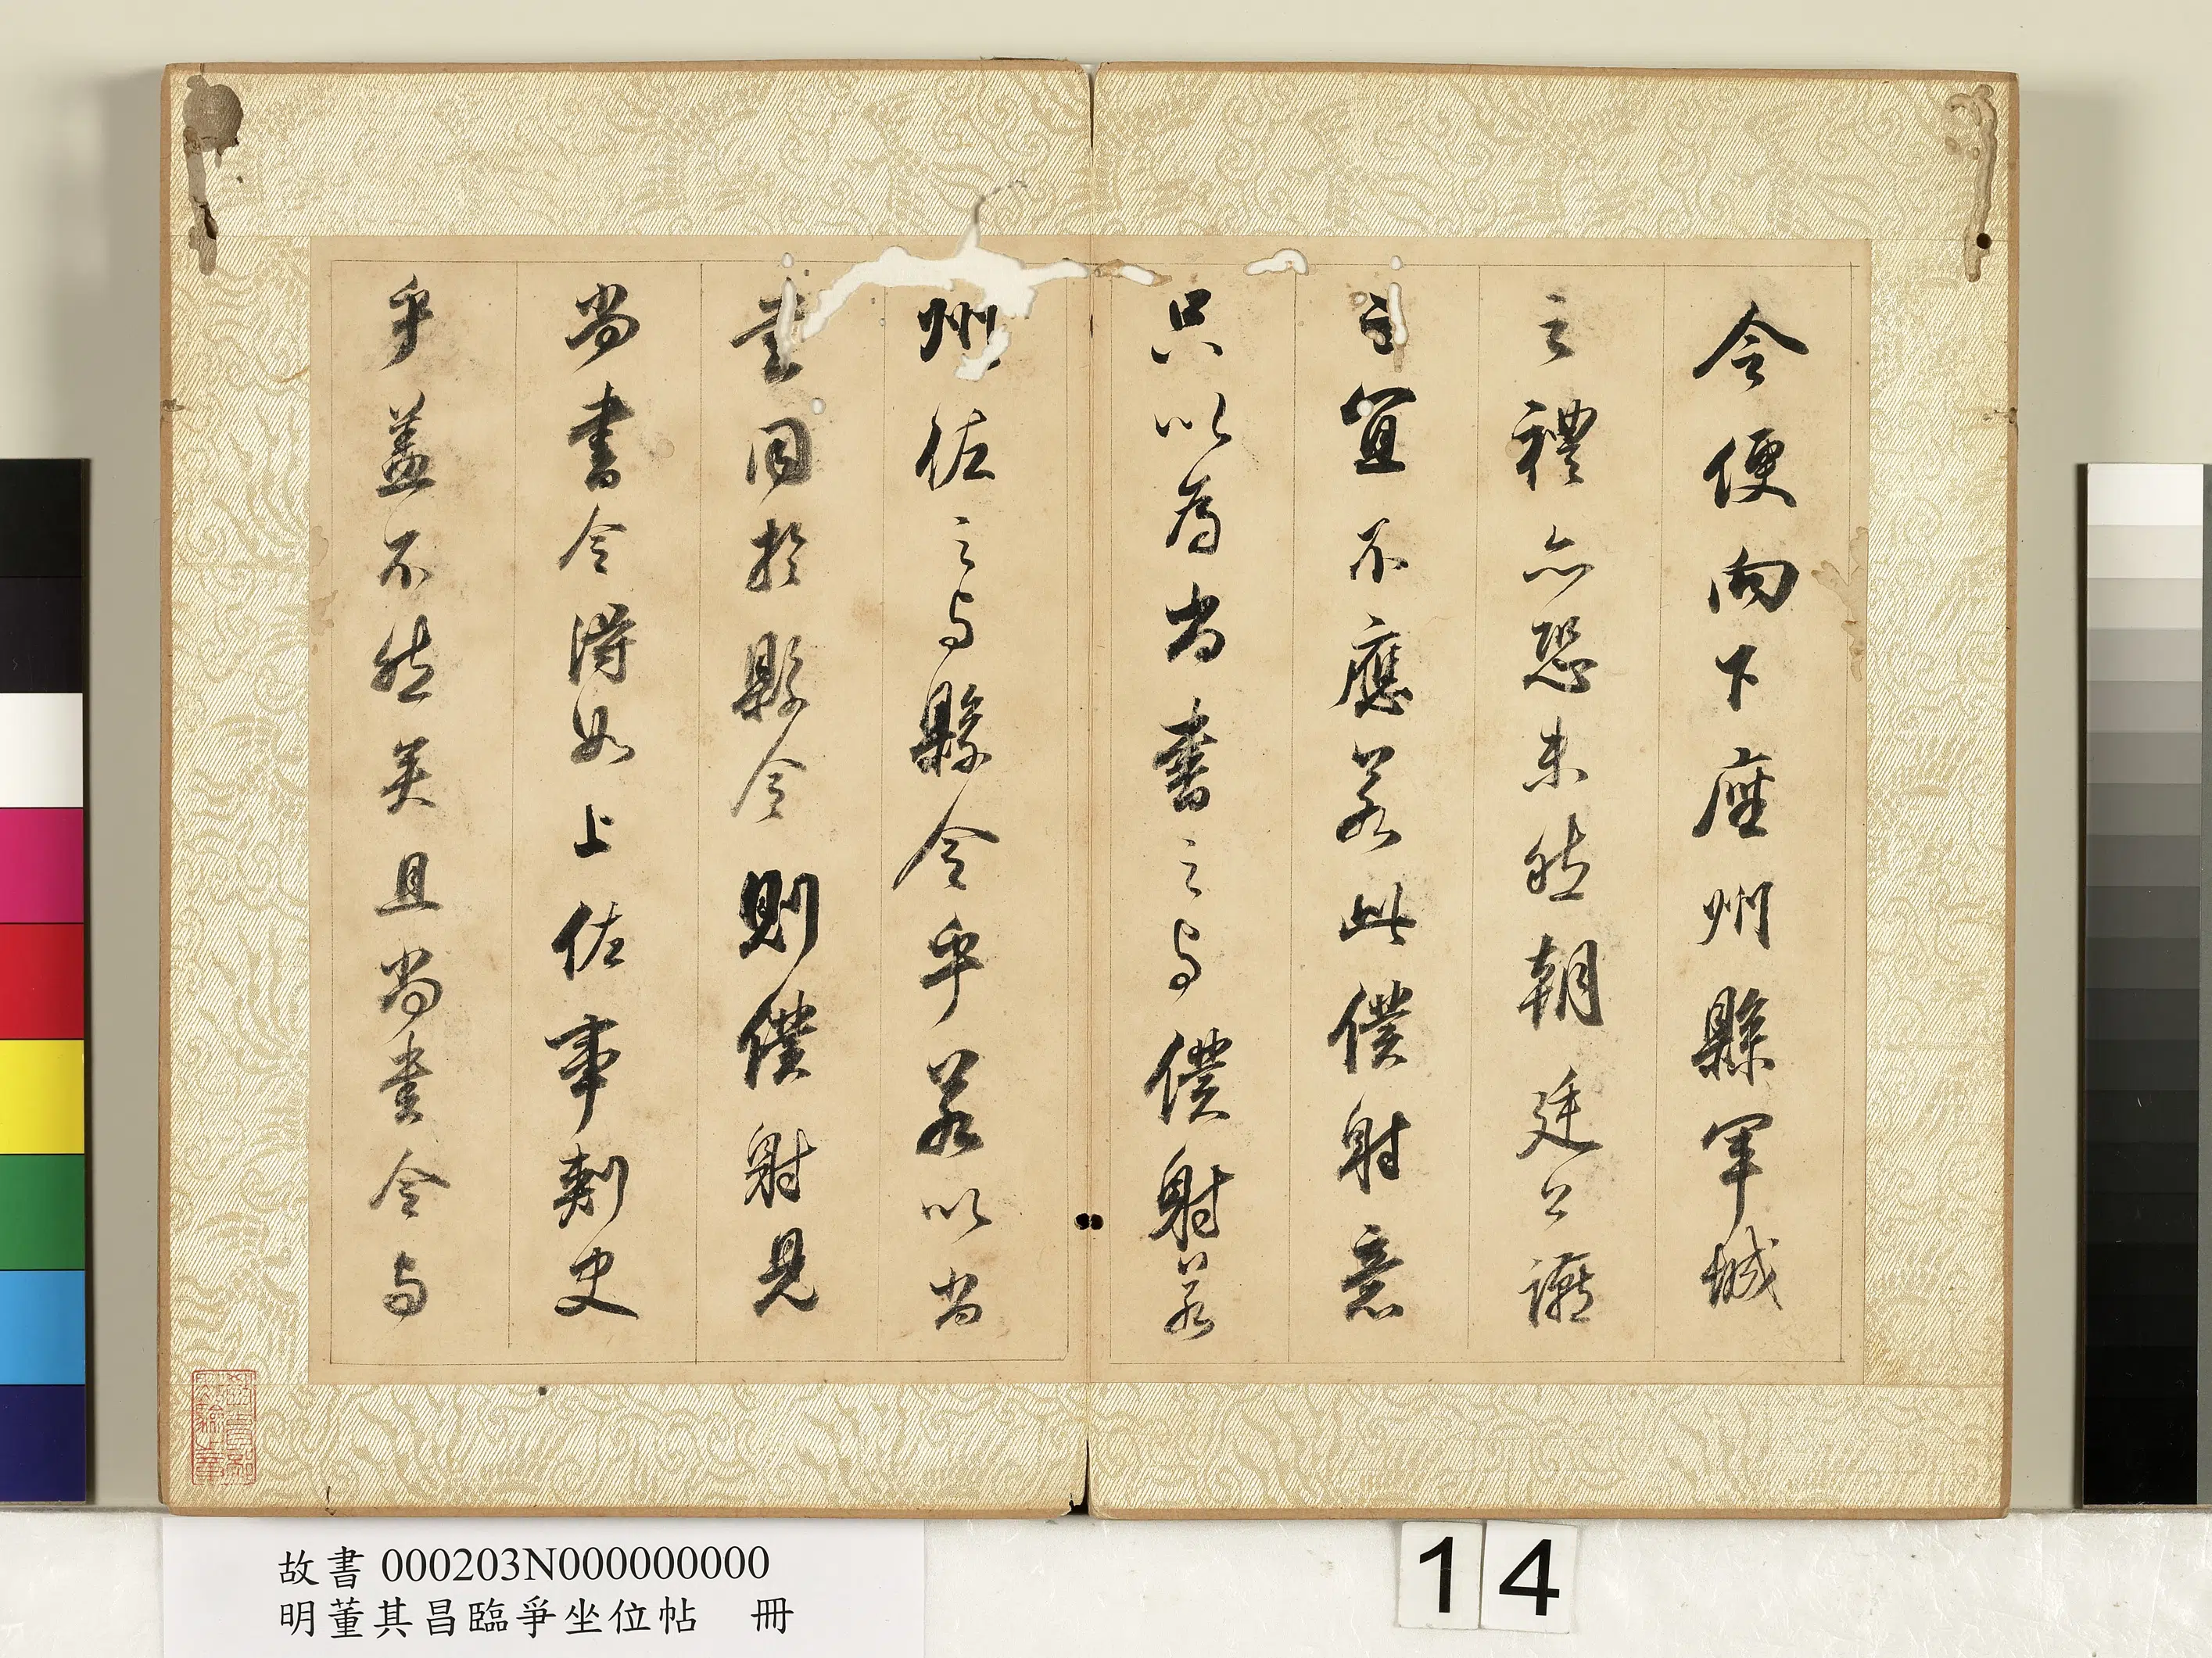 令便向下座州縣軍城
之禮亦恐未然朝廷公讌
之宜不應若此僕射意
只以為尚書之与僕射若
州佐之与縣令乎若以尚
書同於縣令則僕射見
尚書令得如上佐事刺史
乎盖不然矣且尚書令与
教育部
點驗之章
故書 000203N000000000
明董其昌臨爭坐位帖 冊
14